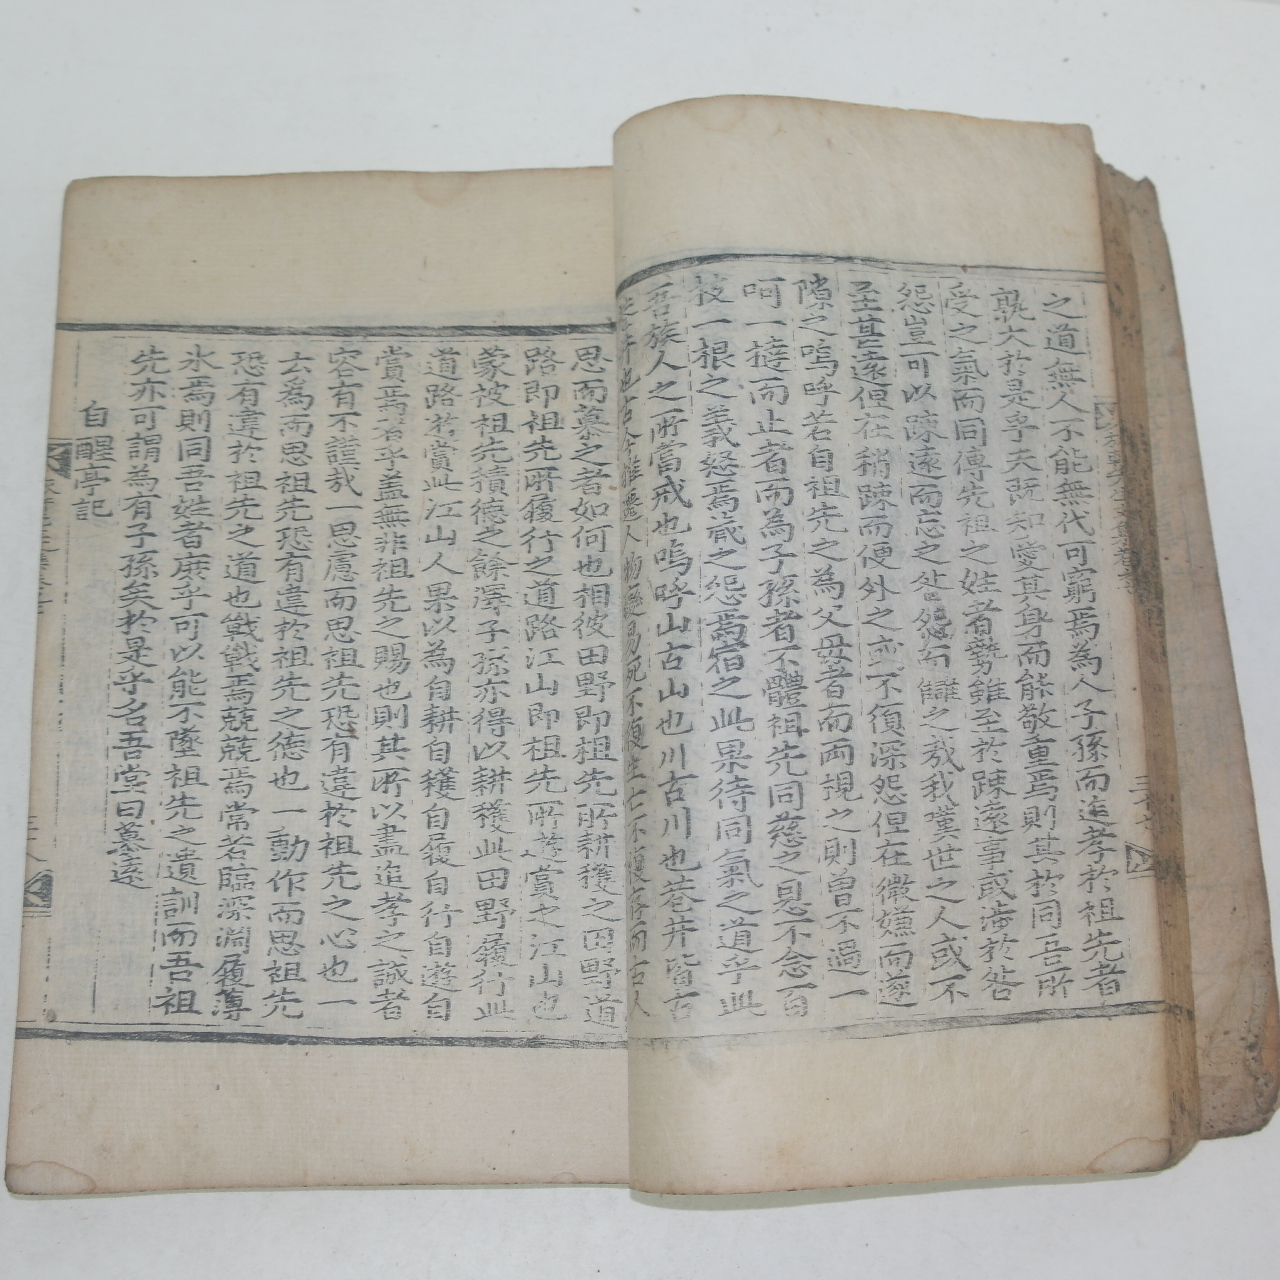 之道無人不能無代可窮焉為人子孫而追孝於祖先者
孰大於是乎夫既知愛其身而能敬重焉則其於同吾所
受之氣而同傳先祖之姓者勢雖至於踈遠事或滯於咎
怨豈可以踈遠而忘之咎怨而讎之哉我嘆世之人或不
至甚遠但在稍踈而便外之亦不須深怨但在微嫌而遂
隙之嗚呼若自祖先之為父母者而両視之則曾不過一
呵一撻而止者而為子孫者不軆祖先同慈之恩不念百
枝一根之義怒焉藏之怨焉宿之此果待同氣之道乎此
吾族人之所當戒也嗚呼山古山也川古川也巷井皆古
之井也古今雖遞人物易死不復生亡不復存而古人
思而慕之者如何也相彼田野即祖先所耕穫之田野道
路即祖先所履行之道路江山即祖先所遊賞之江山也
蒙被祖先積德之餘澤子孫亦得以耕穫此田野履行此
道路遊賞此江山人果以為自耕自穫自履自行自遊自
賞焉者乎盖無非祖先之賜也則其所以盡追孝之誠者
容有不謹哉一思慮而思祖先恐有違於祖先之心也一
云為而思祖先恐有違於祖先之德也一動作而思祖先
恐有違於祖先之道也戰戰焉兢兢焉常若臨深淵履薄
氷焉則同吾姓者庶乎可以能不墜祖先之遺訓而吾祖
先亦可謂為有子孫矣於是乎名吾堂曰慕遠
自醒亭記